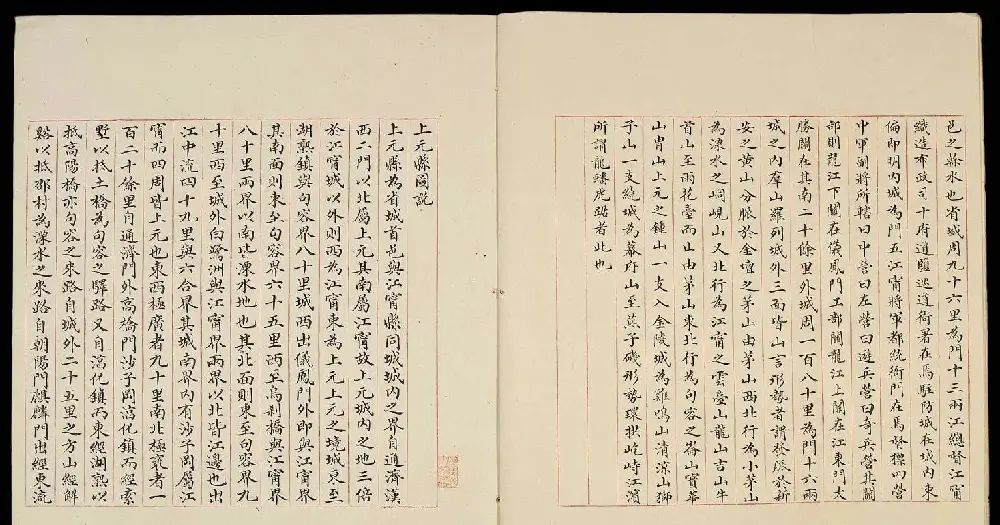 邑之水也省城周九十六里為門十三兩江總督江甯
織造布政司十府道暨巡道衙署在焉駐防城在城內東
偏即明內城為門五江甯將軍都統衙門在焉督標四營
中軍副將所轄曰中營曰左營曰遊兵營曰奇兵營其關
部則龍江下關在儀鳳門工部關龍江上關在江東門大
勝關在其南二十餘里外城周一百八十里為門十六兩
城之內羣山羅列城外三面皆山言形勢者謂發脈於新
安之黃山分脈於金壇之茅山由茅山西北行為小茅山
為溧水之峒峴山又北行為江甯之雲臺山龍山吉山牛
首山至雨花臺而山由茅山東北行為句容之崙山寶華
山胄山上元之鍾山一支入金陵城為雞鳴山清涼山獅
子山一支繞城為幕府山至燕子磯形勢環拱屹峙江濱
所謂龍蟠虎踞者此也
上元縣圖說
上元縣為省城首邑與江甯縣同城城內之界自通濟漢
西二門以北屬上元其南屬江甯故上元城內之地三倍
於江甯城以外則西為江甯東為上元上元之境城東至
湖熟鎮與句容界八十里城西出儀鳳門外即與江甯界
其南面則東至句容界六十五里西至烏刹橋與江甯界
八十里兩界以南皆溧水地也其北面則東至句容界九
十里西至城外白鷺洲與江甯界兩界以北皆江邊也出
江中流四十九里與六合界其城南界內有沙子岡屬江
甯而四周皆上元也東西極廣者九十里南北極袤者一
百二十餘里自通濟門外高橋門沙子岡淳化鎮而經索
墅以抵土橋為句容之驛路又自淳化鎮而東經湖熟以
抵高陽橋亦句容之來路自城外二十五里之方山經解
谿以抵那村為溧水之來路自朝陽門麒麟門出經東流